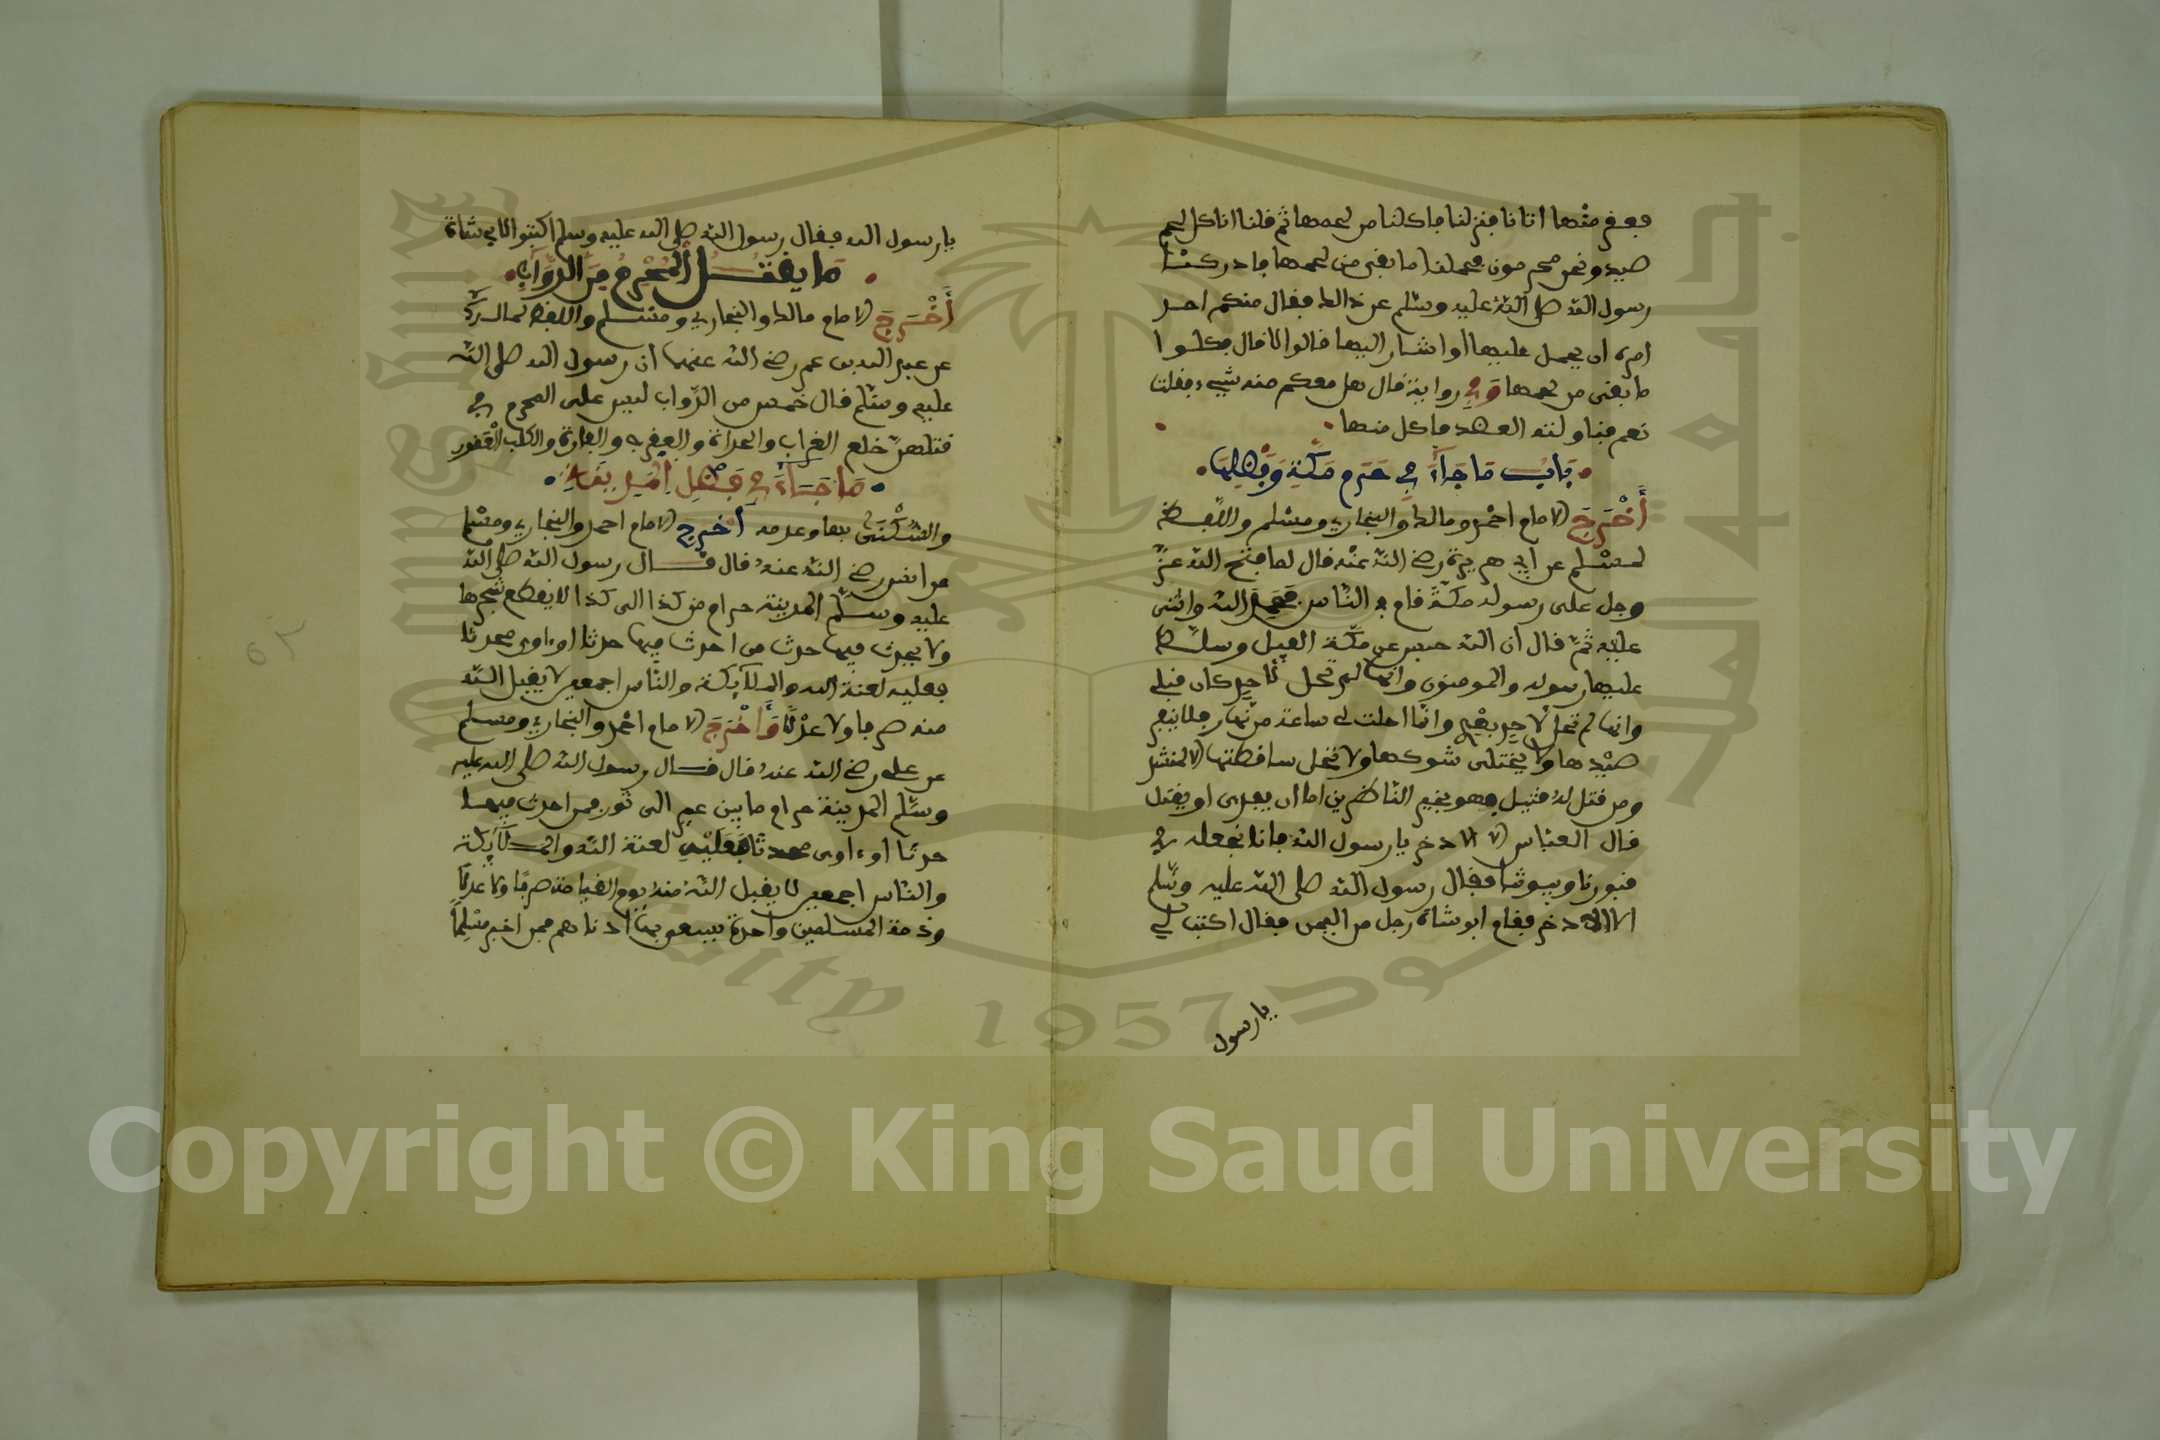 فعقر منها اتانا فنزلنا فاكلنا من لحمها ثم قلنا اناكل لحم
صيد ونحن محرمون فحملنا ما بقى من لحمها فادركنا
رسول الله صلى الله عليه وسلم عن ذالك فقال منكم احد
امره ان يحمل عليها اواشار اليها قالوا لا قال فكلوا
ما بقى من لحمها وفي رواية قال هل معكم منه شيء فقلت
نعم فناولته العضد فاكل منها
باب ما جاء في حرم مكة وفضلها
أخرج الامام احمد ومالك والبخاري ومسلم واللفظ
لمسلم عن ابي هريرة رضي الله عنه قال لما فتح الله عز
وجل على رسوله مكة قام في الناس فحمد الله واثنى
عليه ثم قال ان الله حبس عن مكة الفيل وسلط
عليها رسوله والمومنون وانها لم تحل لاحد كان قبلي
وانها لم تحل لاحد بعدي وانما احلت لي ساعة من نهار فلا ينفر
صيدها ولا يختلى شوكها ولا تحل ساقطتها الا لمنشد
ومن قتل له قتيل فهو بخير الناظرين اما ان يفدى او يقتل
قال العباس الا الاذخر يا رسول الله فانا نجعله في
قبورنا وبيوتنا فقال رسول الله صلى الله عليه وسلم
الا الاذخر فقام ابو شاة رجل من اليمن فقال اكتب لي
يا رسول
يا رسول الله فقال رسول الله صلى الله عليه وسلم اكتبوا لابي شاة
ما يقتل المحرم من الدواب
أخرج الامام مالك والبخاري ومسلم واللفظ لمالك
عن عبد الله بن عمر رضي الله عنهما ان رسول الله صلى الله
عليه وسلم قال خمس من الدواب ليس على المحرم في
قتلهن جناح الغراب والحداة والعقرب والفارة والكلب العقور
ما جاء في فضل المدينة
والسكنى بها وعدمه أخرج الامام احمد والبخاري ومسلم
عن انس رضي الله عنه قال قال رسول الله صلى الله
عليه وسلم المدينة حرام من كذا الى كذا لا يقطع شجرها
ولا يحدث فيها حدث من احدث فيها حدثا او اوى محدثا
فعليه لعنة الله والملآيكة والناس اجمعين لا يقبل الله
منه صرفا ولا عدلا وأخرج الامام احمد والبخاري ومسلم
عن علي رضي الله عنه قال قال رسول الله صلى الله عليه
وسلم المدينة حرام ما بين عير الى ثور فمن احدث فيها
حدثا او اوى محدثا فعليه لعنة الله والملآيكة
والناس اجمعين لا يقبل الله منه يوم القيامة صرفا ولا عدلا
وذمة المسلمين واحدة يسعى بها ادناهم فمن اخفر مسلما
Copyright © King Saud University
1957